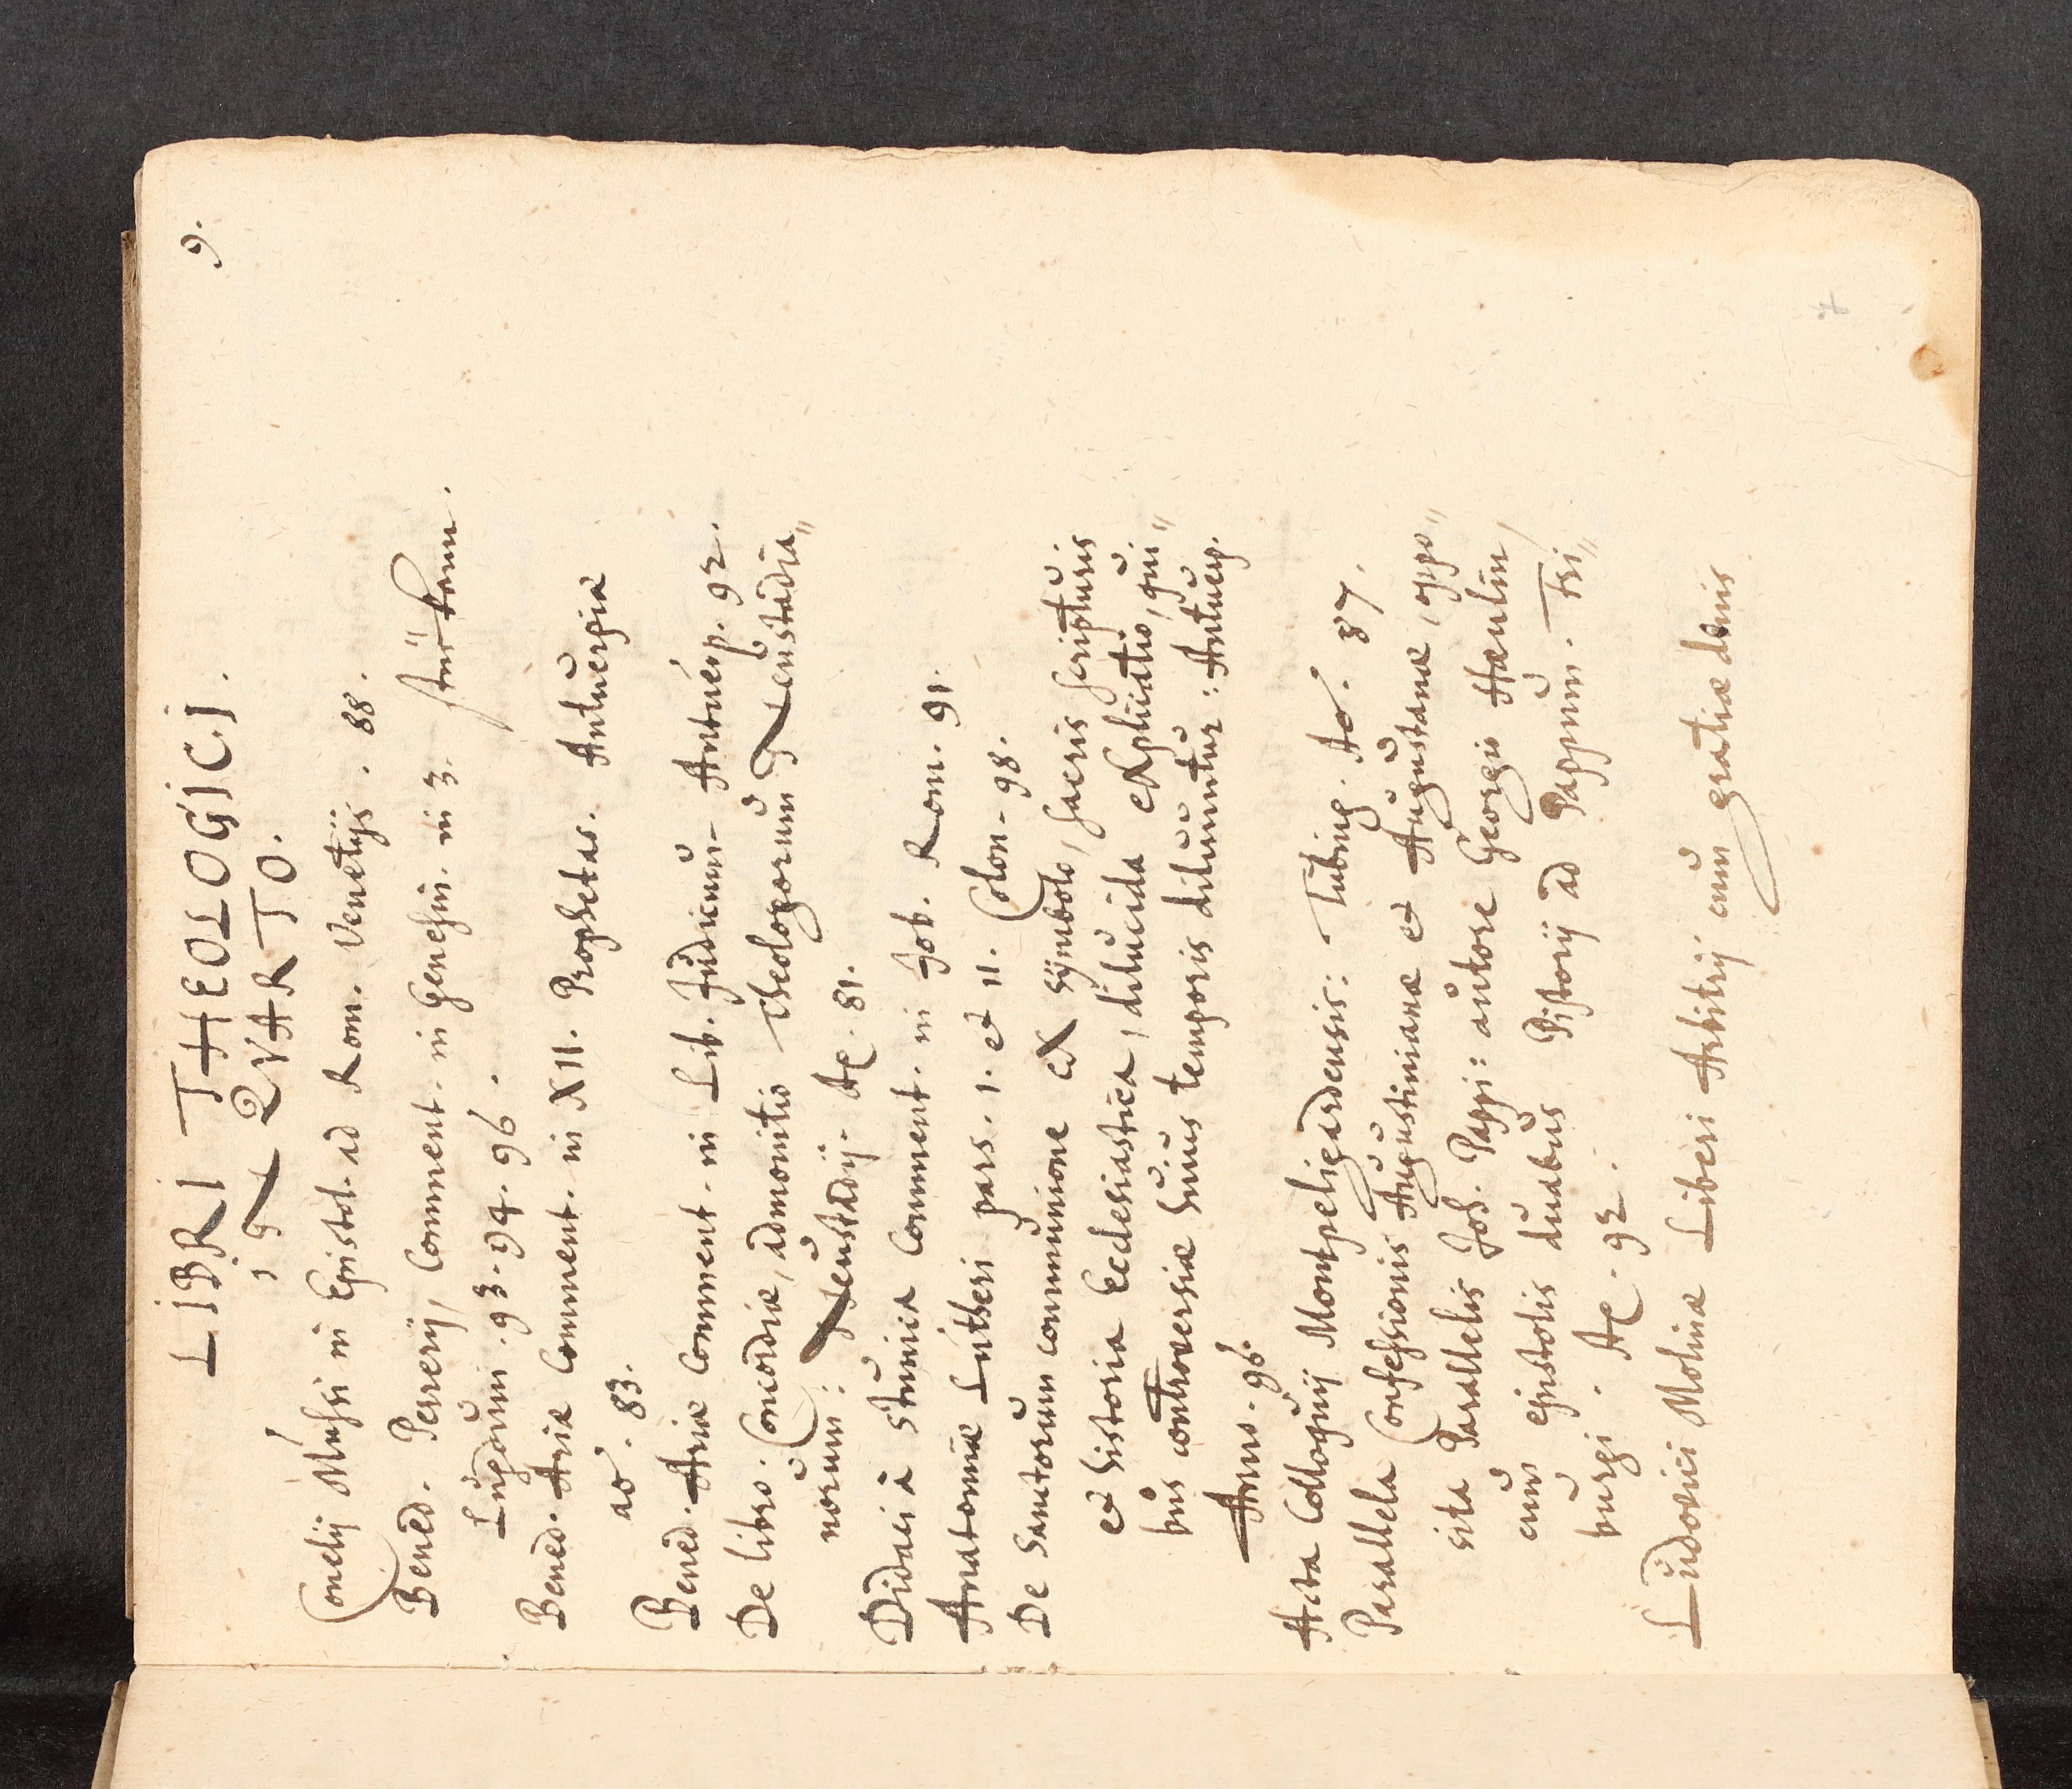 9.
LIBRI THEOLOGICI.
IN 2VARTO.
Cornelij Mussi in Epistol. ad Rom. Venetijs. 88.
Bened. Pererij, Comment. in Genesin. in 3.
Lugduni. 93. 94. 96.
Bened. Ariæ Comment. in XII. Prophetas. Antuerpiæ
ao. 83.
Bened. Ariæ Comment. in Lib. Judicum. Antuerp. 92.
De libro. Concordiæ, admonitio Theologorum Neustadia〃
norum: Neustadij. Ac. 81.
Didaci à Stunica Comment. in Job. Rom. 91.
Anatomiæ Lutheri pars. 1. et 11. Colon. 98.
De Sanctorum communione ex Symbolo, sacris scripturis
et historia Ecclesiastica, dilucida explicatio, qui〃
bus controversiæ huius temporis diluuntur: Antuerp.
Anno. 96.
Acta Colloquij Montpeligardensis: Tubing. Ao. 87.
Parallela Confessionis Augustinianæ et Augustanæ, oppo〃
sita Parallelis Joh. Pappi: autore Georgio Hænlin,
cum epistolis duabus Pistorij ad Pappum. Fri〃
burgi. Ac. 92.
Ludovici Molinæ Liberi Arbitrij cum gratiæ donis